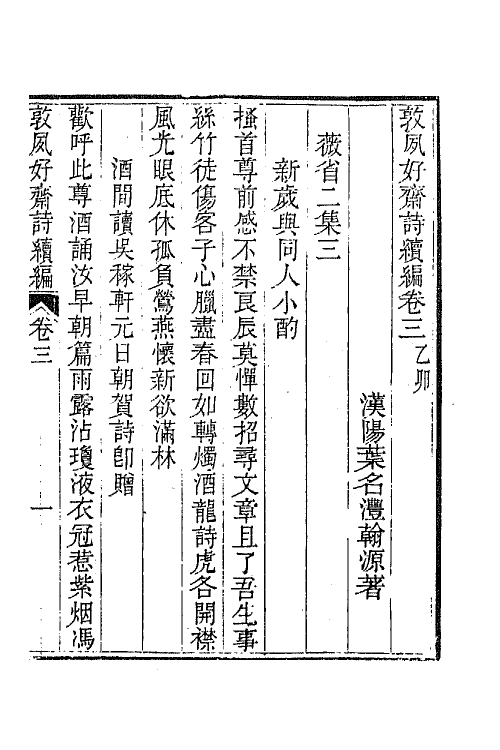 敦夙好齋詩續編卷三乙卯
漢陽葉名灃翰源著
薇省二集三
新歲與同人小酌
搔首尊前感不禁良辰莫憚數招尋文章且了吾生事
絲竹徒傷客子心臘盡春回如轉燭酒龍詩虎各開襟
風光眼底休孤負鶯燕懷新欲滿林
酒間讀吳稼軒元日朝賀詩卽贈
歡呼此尊酒誦汝早朝篇雨露沾瓊液衣冠惹紫烟馮
敦夙好齋詩續編 卷三 一